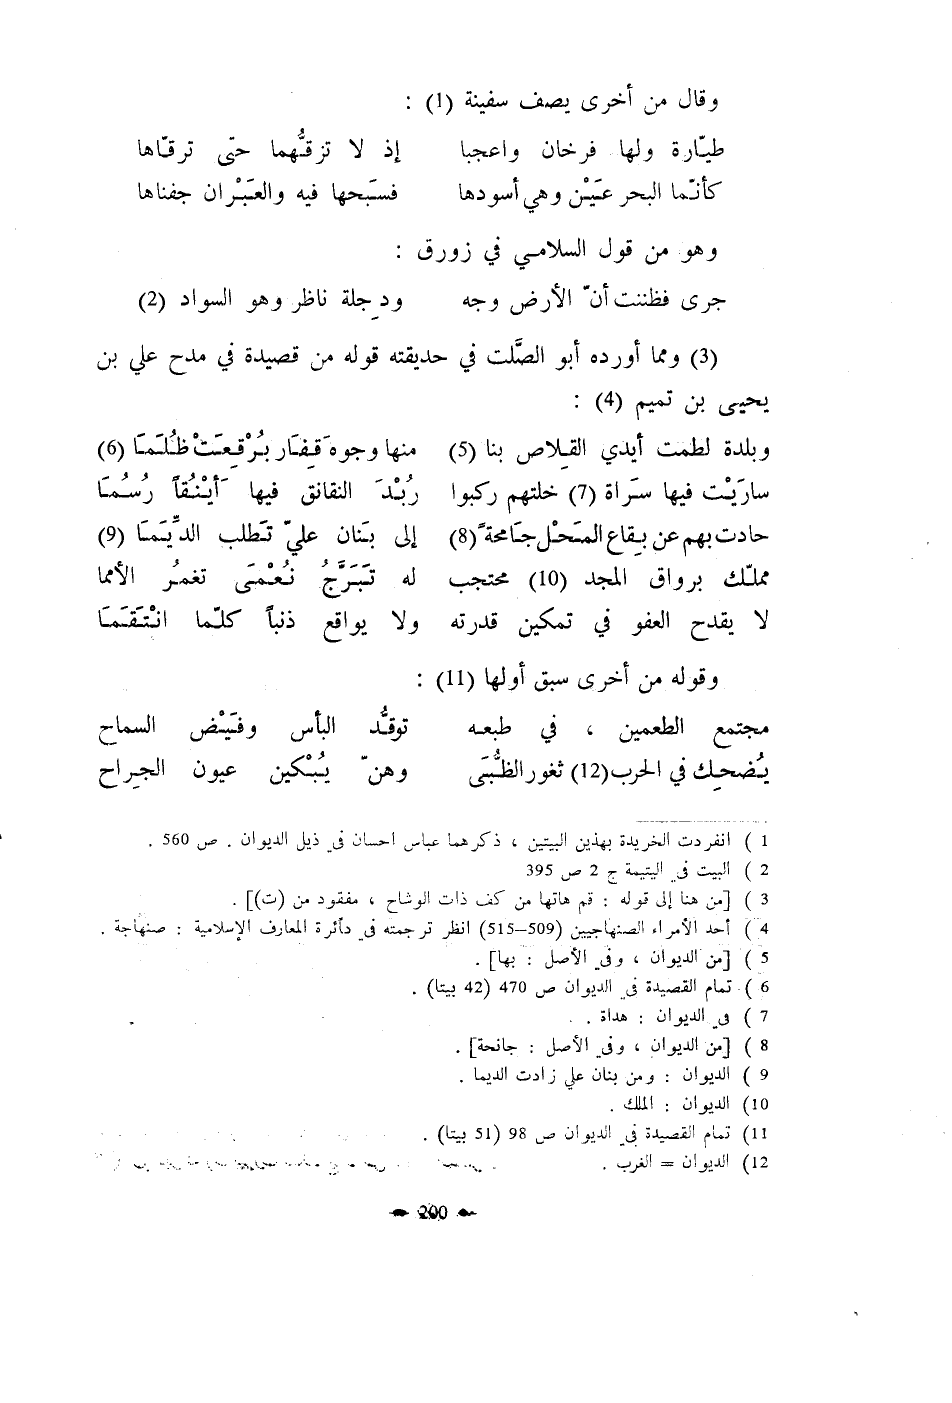 وقال من أخرى يصف سفينة (1) :
طيّارة ولها فرخان واعجبا إذ لا تزقّهما حتّى ترقّاها
كأنّما البحر عَيْن وهي أسودها فسَبحها فيه والعَبْران جفناها
وهو من قول السلامي في زورق :
جرى فظننت أنّ الأرض وجه ودجلة ناظر وهو السواد (2)
(3) ومما أورده أبو الصَّلت في حديقته قوله من قصيدة في مدح علي بن
يحيى بن تميم (4) :
وبلدة لطمت أيدي القلاص بنا (5) منها وجوه قِفَار بُرْقِعَتْ ظُلَمَا (6)
سارَيْت فيها سَراة (7) خلتهم ركبوا رُبْدَ النقانق فيها أيْنُقاً رُسُمَا
حادت بهم عن بِقاع المَحْل جَامحة (8) إلى بَنان عليّ تَطلب الدِّيَمَا (9)
مملّك برواق المجد (10) محتجب له تَبَرَّجُ نُعْمَى تغمرُ الأمما
لا يقدح العفو في تمكين قدرته ولا يواقع ذنباً كلّما انْتَقَمَا
وقوله من أخرى سبق أولها (11) :
مجتمع الطعمين ، في طبعه توقّدُ البأس وفَيْض السماح
يُضحِك في الحرب (12) ثغور الظُّبَى وهنّ يُبْكين عيون الجِراح
1 ) انفردت الخريدة بهذين البيتين ، ذكرهما عباس احسان في ذيل الديوان . ص 560 .
2 ) البيت في اليتيمة ج 2 ص 395
3 ) [من هنا إلى قوله : قم هاتها من كف ذات الوشاح ، مفقود من (ت)] .
4 ) أحد الأمراء الصنهاجيين (509–515) انظر ترجمته في دائرة المعارف الإسلامية : صنهاجة .
5 ) [من الديوان ، وفي الأصل : بها] .
6 ) تمام القصيدة في الديوان ص 470 (42 بيتا) .
7 ) في الديوان : هداة .
8 ) [من الديوان ، وفي الأصل : جانحة] .
9 ) الديوان : ومن بنان علي زادت الديما .
10) الديوان : الملك .
11) تمام القصيدة في الديوان ص 98 (51 بيتا) .
12) الديوان = الغرب .
200